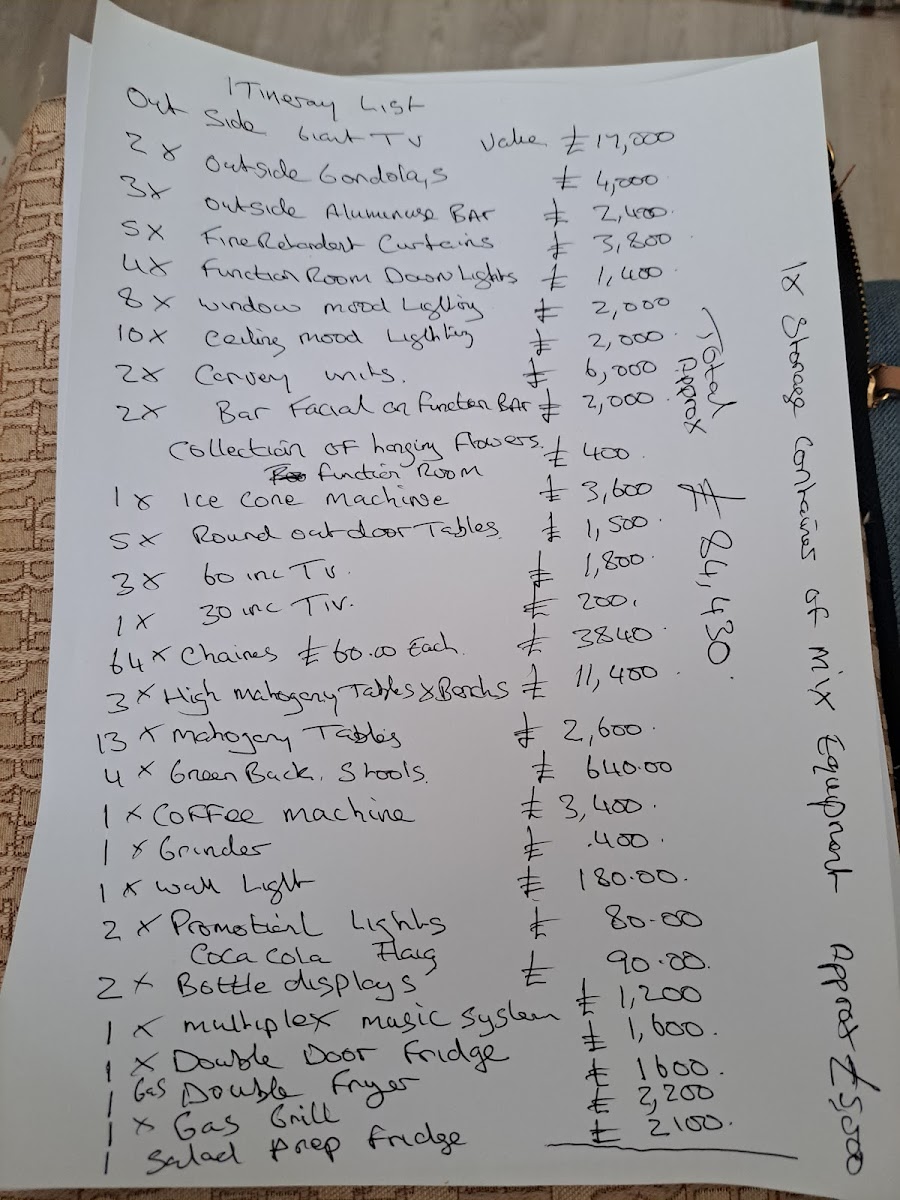 ITineray List
Out Side Giant TV Value £17,000
2x Outside Gondola,s £4,000
3x Outside Aluminuse BAR £2,400.
5x FireRetardent Curtains £3,800
4x Function Room Down Lights £1,400
8x window mood Lighting £2,000
10x Ceiling mood Lighting £2,000
2x Carvery units. £6,000
2x Bar Facial on Function BAR £2,000
Collection of hanging flowers. £400
function Room
1x Ice Cone Machine £3,600
5x Round outdoor Tables £1,500
3x 60 inc Tv. £1,800
1x 30 inc T.V. £200.
64x Chaires £60.00 Each. £3840
3x High Mahogany Tables x Benchs £11,400
13x Mahogany Tables £2,600.
4x Green Back. Stools. £640.00
1x Coffee machine £3,400.
1x Grinder £.400.
1x Wall Light £180.00.
2x Promotial Lights £80.00
Coca Cola Flaig
2x Bottle displays £90.00.
1x Multiplex music system £1,200
1x Double Door Fridge £1,600.
1 Gas Double Fryer £1600.
1x Gas Grill £2,200
1 Salad Prep Fridge £2100.
Total Approx £84,430.
1x Storage Container of Mix Equipment Approx £5,000